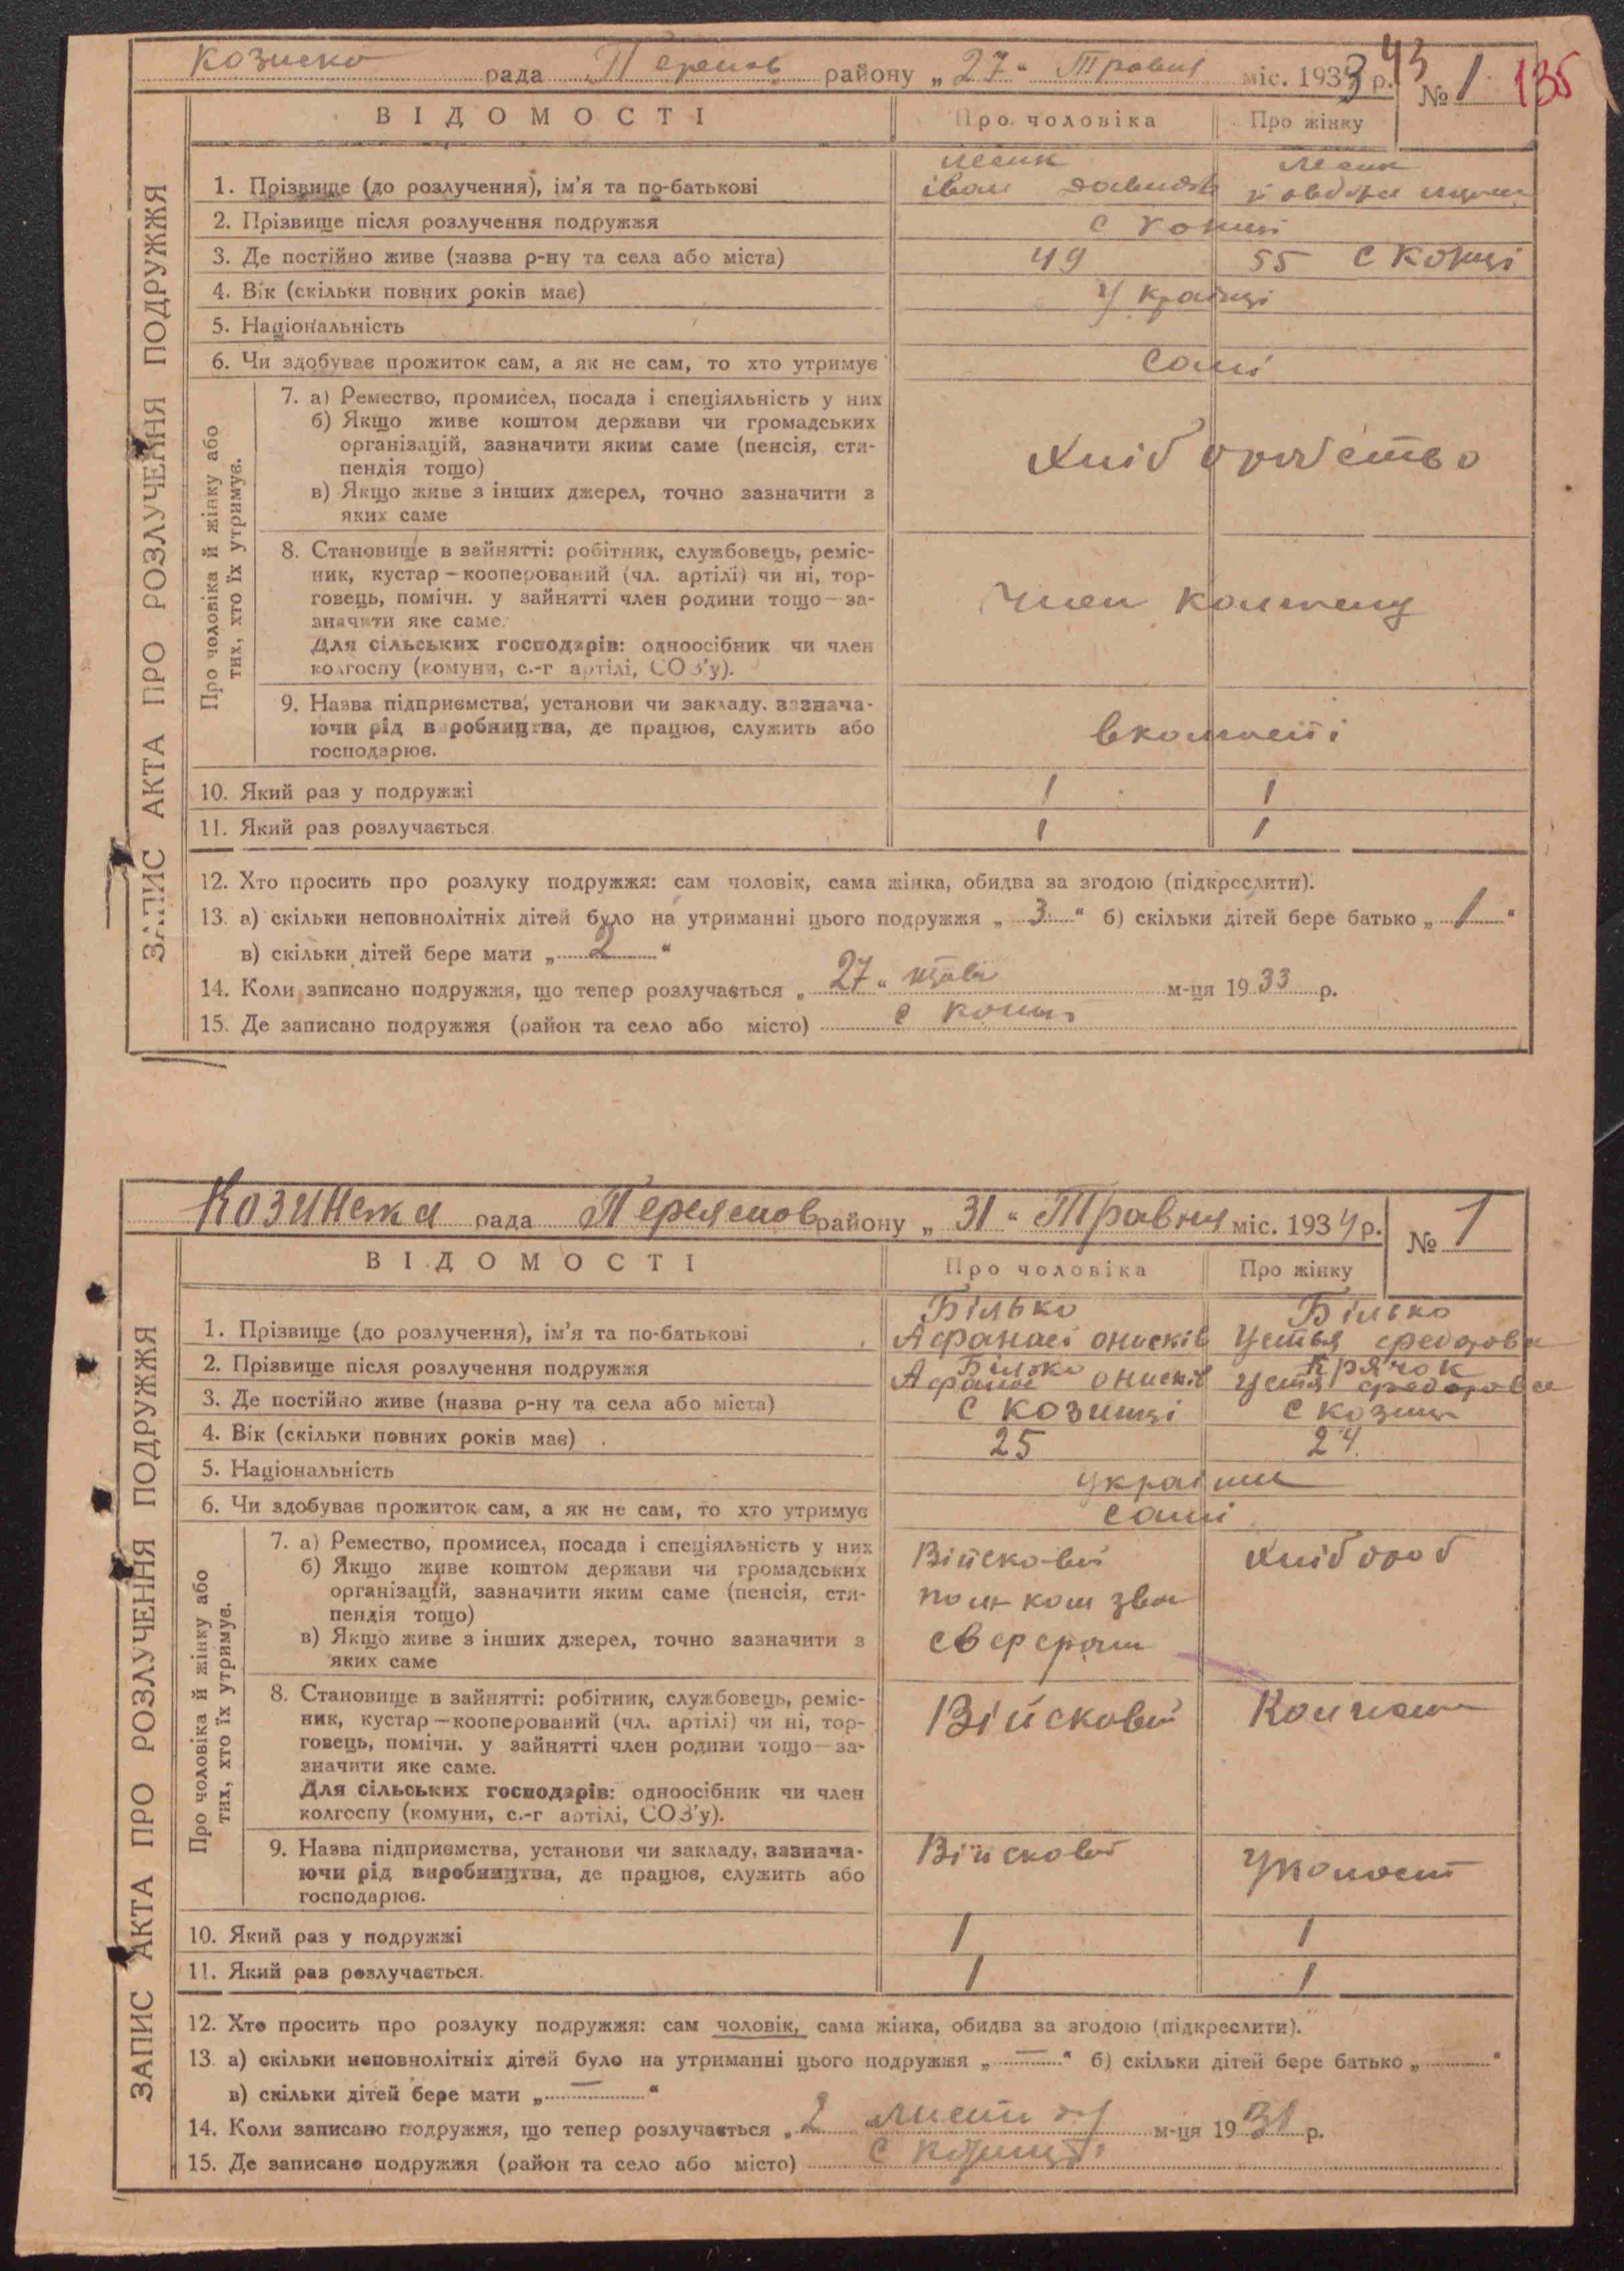 43
Козиско рада Переяс району „ 27 “ Травня міс. 1933 р. № 1 135
ВІДОМОСТІ Про чоловіка Про жінку
1. Прізвище (до розлучення), ім'я та по-батькові
іван
2. Прізвище після розлучення подружжя
с
3. Де постійно живе (назва р-ну та села або міста) 49 55 с
4. Вік (скільки повних років має) Українці
5. Національність
6. Чи здобуває прожиток сам, а як не сам, то хто утримує сами
Про чоловіка й жінку або тих, хто їх утримує.
7. а) Ремество, промисел, посада і спеціяльність у них
б) Якщо живе коштом держави чи громадських
організацій, зазначити яким саме (пенсія, сти-
пендія тощо)
Хліборобство
в) Якщо живе з інших джерел, точно зазначити з
яких саме
8. Становище в зайнятті: робітник, службовець, реміс-
ник, кустар—кооперований (чл. артілі) чи ні, тор-
говець, помічн. у зайнятті член родини тощо—за-
значити яке саме.
член
Для сільських господарів: одноосібник чи член
колгоспу (комуни, с.-г артілі, СОЗ'у).
9. Назва підприємства, установи чи закладу, зазнача-
ючи рід виробництва, де працює, служить або
господарює.
10. Який раз у подружжі 1 1
11. Який раз розлучається 1 1
12. Хто просить про розлуку подружжя: сам чоловік, сама жінка, обидва за згодою (підкреслити).
13. а) скільки неповнолітніх дітей було на утриманні цього подружжя „ 3 “ б) скільки дітей бере батько „ 1 “
в) скільки дітей бере мати „ 2 “
14. Коли записано подружжя, що тепер розлучається „ 27 “ м-ця 19 33 р.
15. Де записано подружжя (район та село або місто) с
ЗАПИС АКТА ПРО РОЗЛУЧЕННЯ ПОДРУЖЖЯ
Козинска рада Переяслов району „ 31 “ Травня міс. 1934 р. № 1
ВІДОМОСТІ Про чоловіка Про жінку
Білько Білько
1. Прізвище (до розлучення), ім'я та по-батькові Афанасі онисків Устья федорова
Білько Крячок
2. Прізвище після розлучення подружжя Афанас онисків Устя федорова
3. Де постійно живе (назва р-ну та села або міста) с козинці с козинц
4. Вік (скільки повних років має) 25 24
5. Національність україни
6. Чи здобуває прожиток сам, а як не сам, то хто утримує сами
Про чоловіка й жінку або тих, хто їх утримує.
7. а) Ремество, промисел, посада і спеціяльність у них Війсковий Хлібороб
б) Якщо живе коштом держави чи громадських
організацій, зазначити яким саме (пенсія, сти-
пендія тощо)
в) Якщо живе з інших джерел, точно зазначити з
яких саме
8. Становище в зайнятті: робітник, службовець, реміс-
ник, кустар—кооперований (чл. артілі) чи ні, тор- Війсковий
говець, помічн. у зайнятті член родини тощо—за-
значити яке саме.
Для сільських господарів: одноосібник чи член
колгоспу (комуни, с.-г артілі, СОЗ'у).
9. Назва підприємства, установи чи закладу, зазнача- Війсковий
ючи рід виробництва, де працює, служить або
господарює.
10. Який раз у подружжі 1 1
11. Який раз розлучається. 1 1
12. Хто просить про розлуку подружжя: сам чоловік, сама жінка, обидва за згодою (підкреслити).
13. а) скільки неповнолітніх дітей було на утриманні цього подружжя „ — “ б) скільки дітей бере батько „ “
в) скільки дітей бере мати „ — “
14. Коли записано подружжя, що тепер розлучається „ 2 м-ця 19 31 р.
15. Де записано подружжя (район та село або місто) с
ЗАПИС АКТА ПРО РОЗЛУЧЕННЯ ПОДРУЖЖЯ